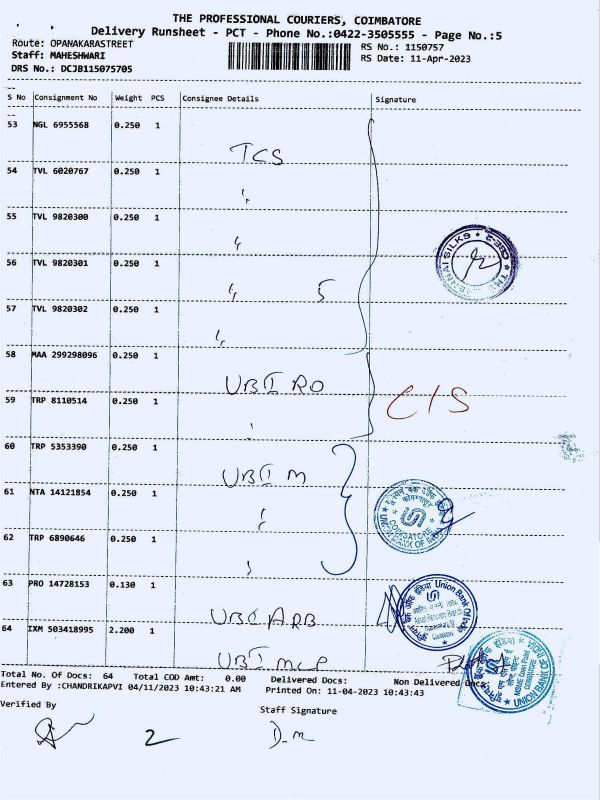 THE PROFESSIONAL COURIERS, COIMBATORE
Delivery Runsheet - PCT - Phone No.:0422-3505555 - Page No.:5
Route: OPANAKARASTREET RS No.: 1150757
Staff: MAHESHWARI RS Date: 11-Apr-2023
DRS No.: DCJB115075705
S No Consignment No Weight PCS Consignee Details Signature
53 NGL 6955568 0.250 1
TCS
54 TVL 6020767 0.250 1
〃
55 TVL 9820300 0.250 1
〃
56 TVL 9820301 0.250 1
〃 5
57 TVL 9820302 0.250 1
〃
58 MAA 299298096 0.250 1
UBI RO
59 TRP 8110514 0.250 1
C/S
60 TRP 5353390 0.250 1
UBI M
61 NTA 14121854 0.250 1
〃
62 TRP 6890646 0.250 1
63 PRO 14728153 0.130 1
UBI ARB
64 IXM 503418995 2.200 1
UBI MLP
THE CHENNAI SILKS ★ CBE-2 ★
UNION BANK OF INDIA
COIMBATORE
Union Bank Of India
UNION BANK OF INDIA
Total No. Of Docs: 64 Total COD Amt: 0.00 Delivered Docs: Non Delivered Docs:
Entered By :CHANDRIKAPVI 04/11/2023 10:43:21 AM Printed On: 11-04-2023 10:43:43
Verified By Staff Signature
2